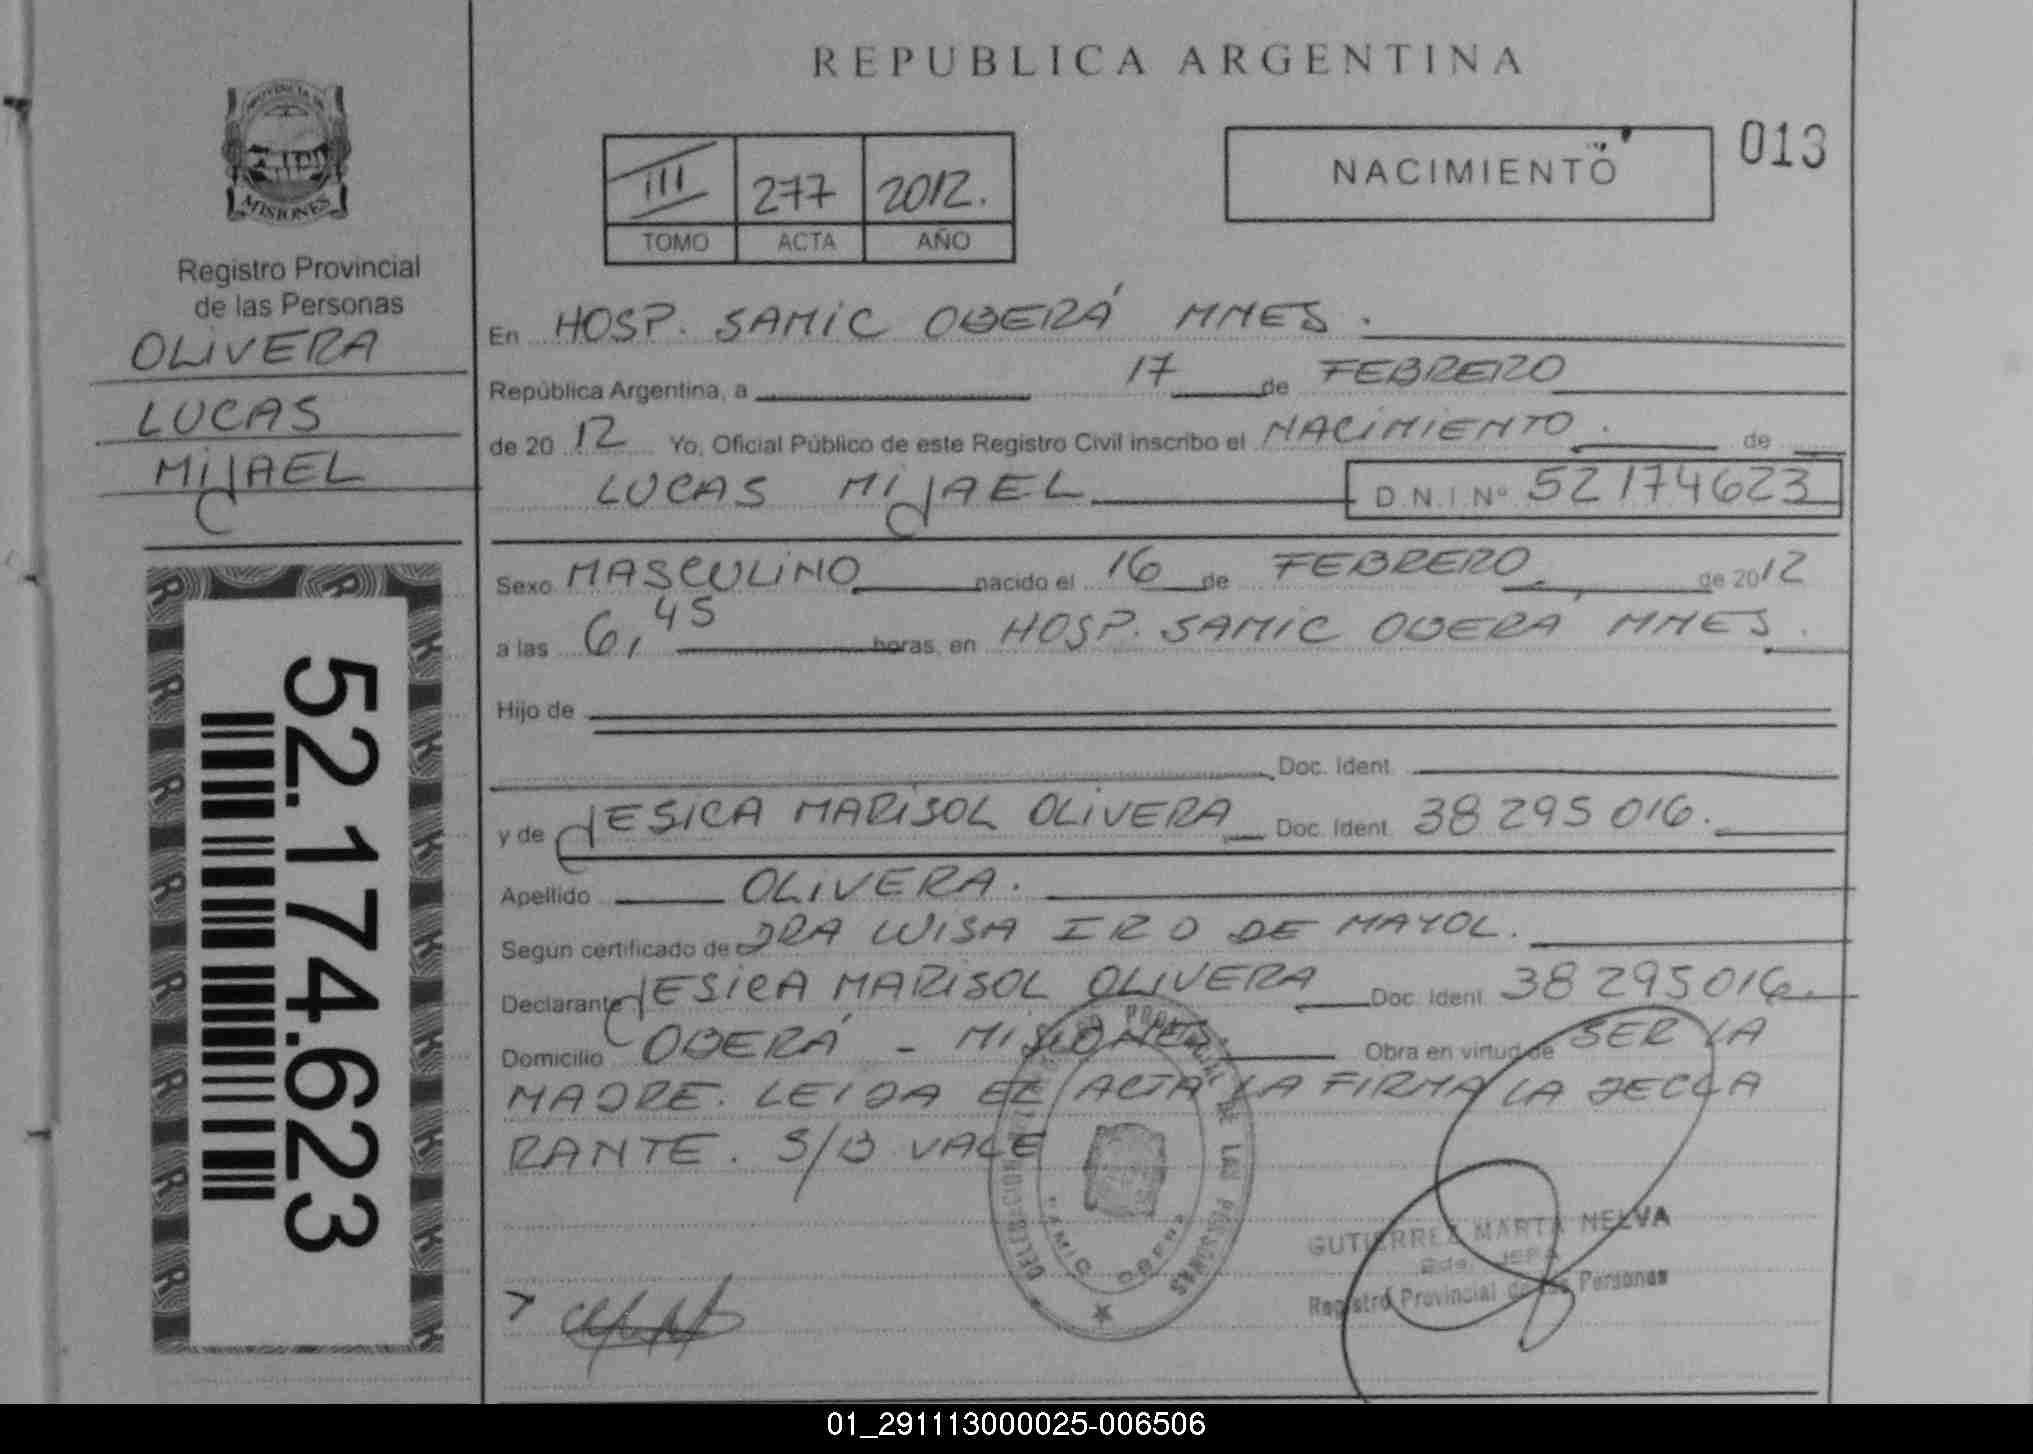 REPUBLICA ARGENTINA
PROVINCIA DE
MISIONES
Registro Provincial
de las Personas
OLIVERA
LUCAS
MIJAEL
52.174.623
III 277 2012.
TOMO ACTA AÑO
NACIMIENTO
013
En HOSP. SAMIC OBERÁ MNES.
República Argentina, a 17 de FEBRERO
de 20 12 Yo, Oficial Público de este Registro Civil inscribo el NACIMIENTO. de
LUCAS MIJAEL D.N.I. Nº 52174623
Sexo MASCULINO nacido el 16 de FEBRERO de 2012
a las 6,45 horas, en HOSP. SAMIC OBERÁ MNES.
Hijo de
Doc. Ident.
y de JESICA MARISOL OLIVERA Doc. Ident. 38 295 016.
Apellido OLIVERA.
Según certificado de DRA LUISA IRO DE MAYOL.
Declarante JESICA MARISOL OLIVERA Doc. Ident. 38 295016.
Domicilio OBERÁ - MISIONES Obra en virtud de SER LA
MADRE. LEIDA EL ACTA LA FIRMA LA DECLA
RANTE. S/B VALE
PROVINCIAL DE LAS PERSONAS
SAMIC OBERA
GUTIERREZ MARTA NELVA
Registro Provincial de las Personas
01_291113000025-006506